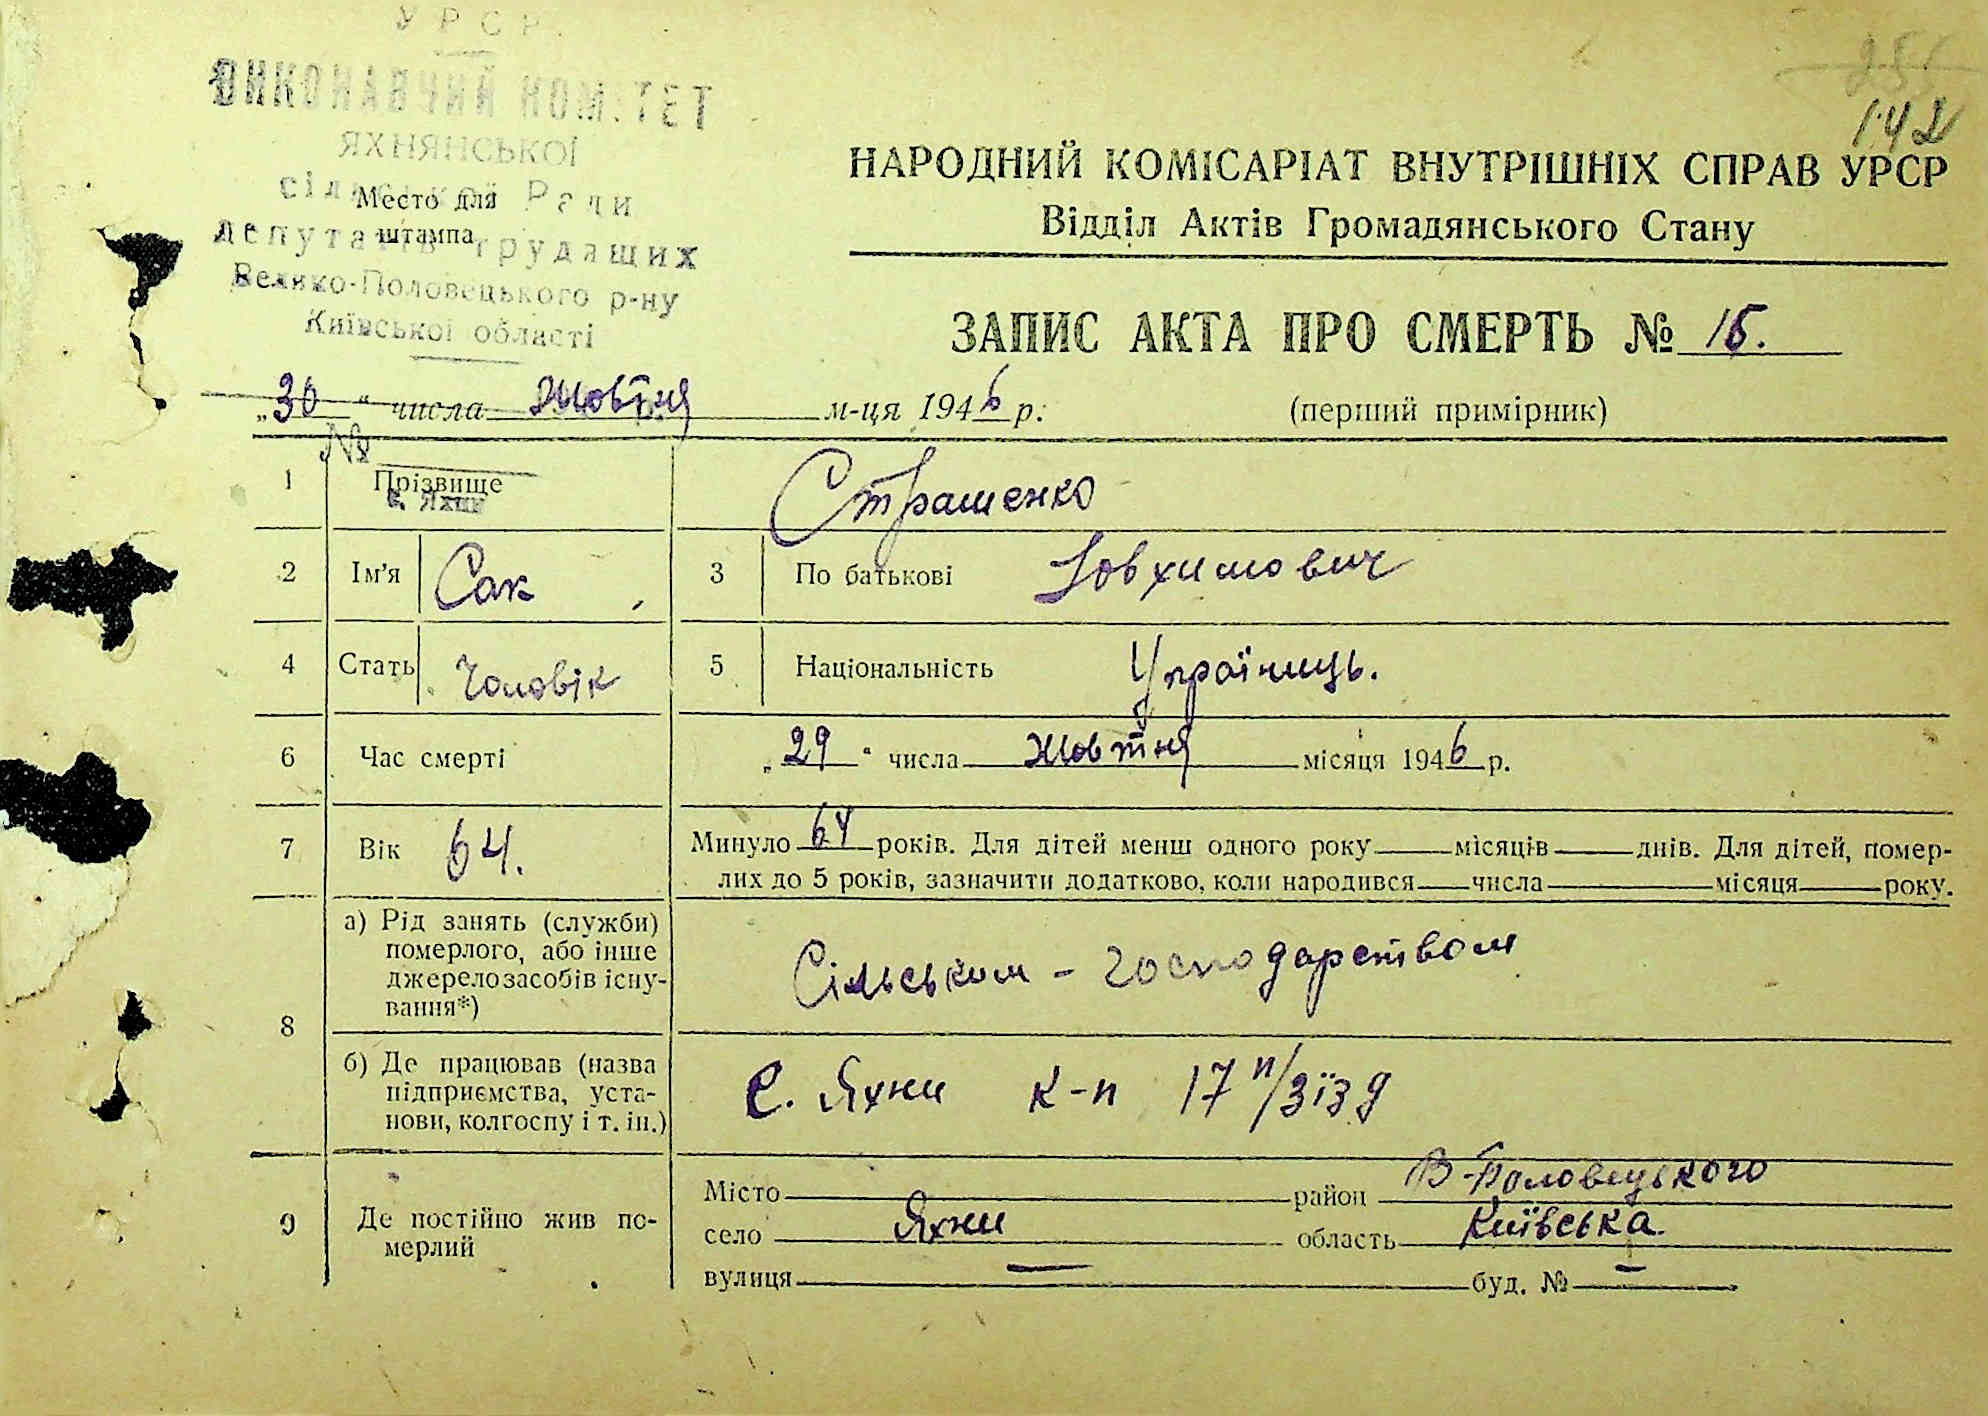 УРСР
ВИКОНАВЧИЙ КОМІТЕТ
ЯХНЯНСЬКОЇ
сільської Ради
депутатів трудящих
Велико-Половецького р-ну
Київської області
Место для
штампа
142
НАРОДНИЙ КОМІСАРІАТ ВНУТРІШНІХ СПРАВ УРСР
Відділ Актів Громадянського Стану
ЗАПИС АКТА ПРО СМЕРТЬ № 15.
„30" числа Жовтня м-ця 1946 р.
(перший примірник)
№
1 Прізвище Страшенко
с. Яхни
2 Ім'я Сак 3 По батькові Йовхимович
4 Стать Чоловік 5 Національність Україниць.
6 Час смерті „29" числа жовтня місяця 1946 р.
7 Вік 64. Минуло 64 років. Для дітей менш одного року місяців днів. Для дітей, помер-
лих до 5 років, зазначити додатково, коли народився числа місяця року.
8 а) Рід занять (служби)
померлого, або інше
джерело засобів існу-
вання*)
Сільським - господарством
б) Де працював (назва
підприємства, уста-
нови, колгоспу і т. ін.)
С. Яхни к-п 17 п/зїзд
9 Де постійно жив по-
мерлий
Місто район В-Половецького
село Яхни область Київська
вулиця — буд. № —